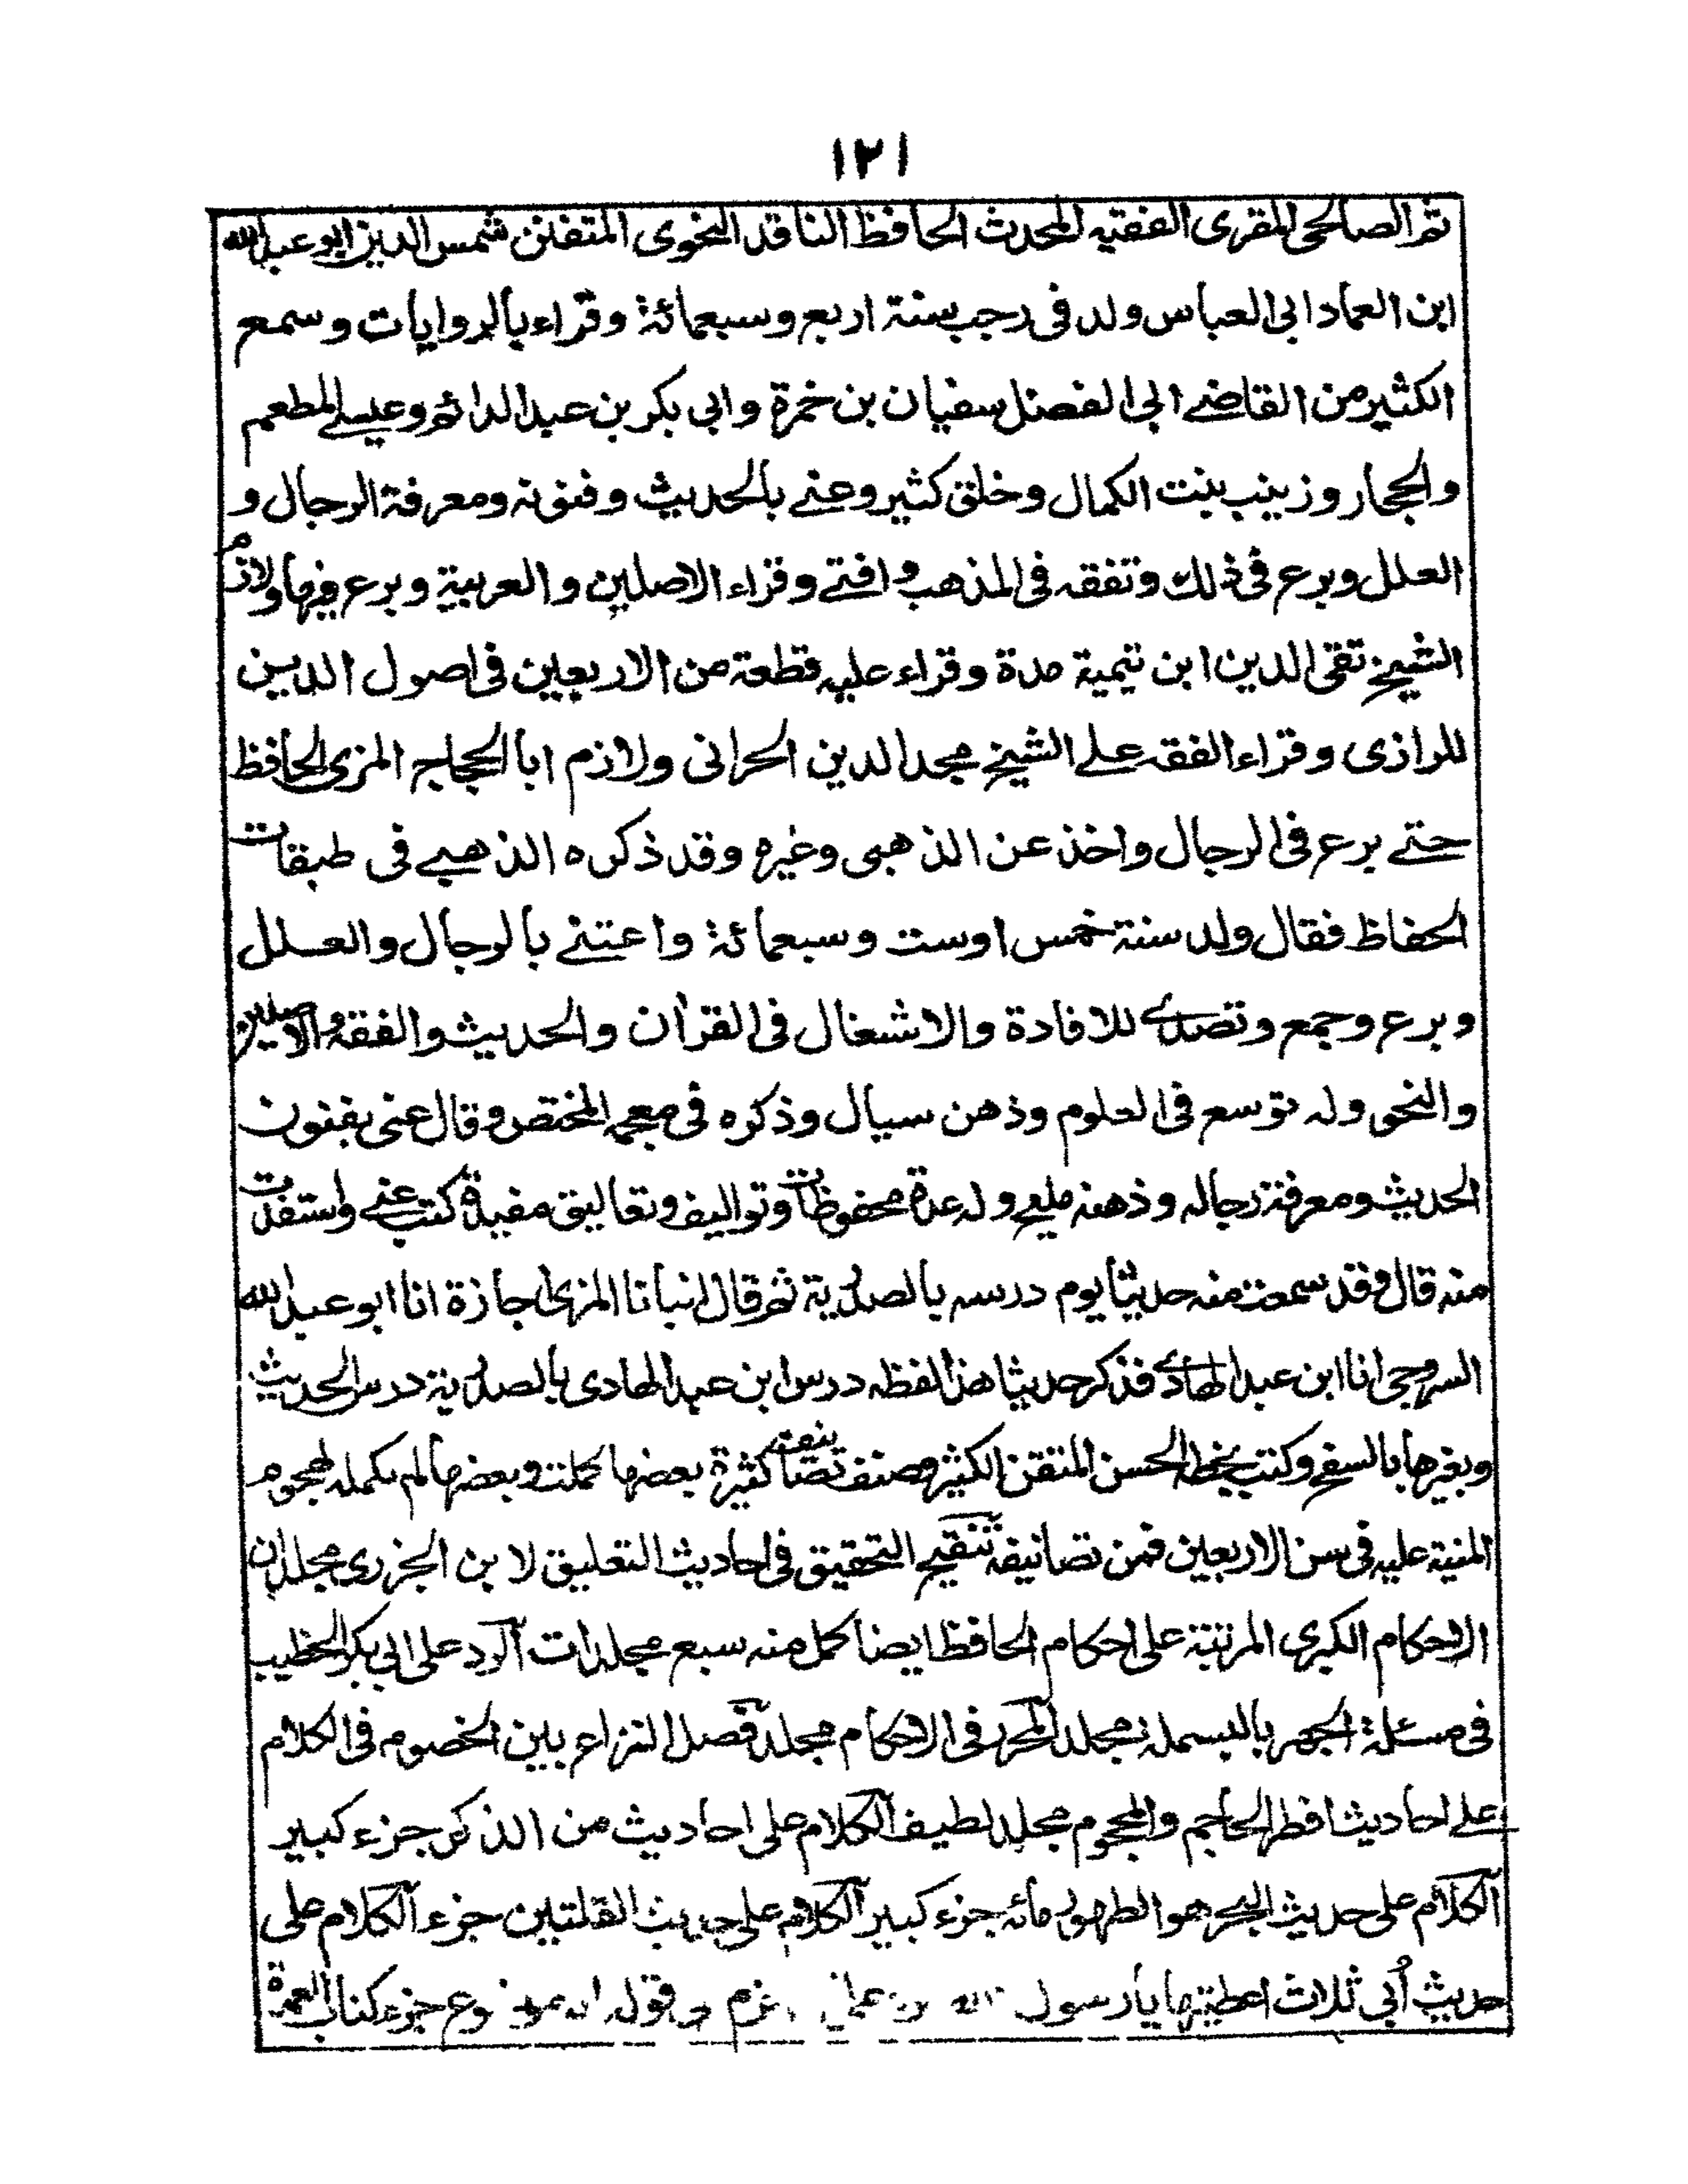 ١٢١
ثم الصالحى المقرى الفقيه المحدث الحافظ الناقد النحوى المتفنن شمس الدين ابو عبد الله
ابن العماد ابى العباس ولد فى رجب سنة اربع وسبعمائة وقراء بالروايات وسمع
الكثير من القاضے ابى الفضل سفيان بن خمرة وابى بكر بن عبد الدائم وعيسے المطعم
والحجار وزينب بنت الكمال وخلق كثير وعنے بالحديث وفنونه ومعرفة الرجال و
العلل وبرع فى ذلك وتفقه فى المذهب وافتے وقراء الاصلين والعربية وبرع فيها ولازم
الشيخ تقى الدين ابن تيمية مدة وقراء عليه قطعة من الاربعين فى اصول الدين
للرازى وقراء الفقه علے الشيخ مجد الدين الحرانى ولازم ابا الحجاج المزى الحافظ
حتے برع فى الرجال واخذ عن الذهبى وغيره وقد ذكره الذهبے فى طبقات
الحفاظ فقال ولد سنة خمس اوست وسبعمائة واعتنے بالرجال والعلل
وبرع وجمع وتصدے للافادة والاشغال فى القران والحديث والفقه والاصلين
والنحو وله توسع فى العلوم وذهن سيال وذكره فى معجمه المختص وقال عنى بفنون
الحديث ومعرفة رجاله وذهنه مليح وله عدة محفوظات وتواليف وتعاليق مفيدة كتب عنے واستفدت
منه قال وقد سمعت منه حديثا يوم درسه بالصدرية ثم قال انبانا المزى اجازة انا ابو عبد الله
السروجى انا ابن عبد الهادے فذكر حديثا هذا لفظه درس ابن عبد الهادى بالصدرية درس الحديث
وبغيرها بالسفح وكتب بخطه الحسن المتقن الكثير وصنف تصانيف كثيرة بعضها كملت وبعضها لم يكمله لهجوم
المنية عليه فى سن الاربعين فمن تصانيفه تنقيح التحقيق فى احاديث التعليق لابن الجزرى مجلدان
الاحكام الكبرى المرتبة على احكام الحافظ ايضا كمل منه سبع مجلدات الرد على ابى بكر الخطيب
فى مسئلة الجهر بالبسملة مجلد المحرر فى الاحكام مجلد فصل النزاع بين الخصوم فى الكلام
علے احاديث افطر الحاجم والمحجوم مجلد لطيف الكلام على احاديث من الذكر جزء كبير
الكلام على حديث البحر هو الطهور مائه جزء كبير الكلام على حديث القلتين جزء الكلام على
حديث أبى ثلاث اعطيتها يا رسول قوله جزء كتاب العمدة